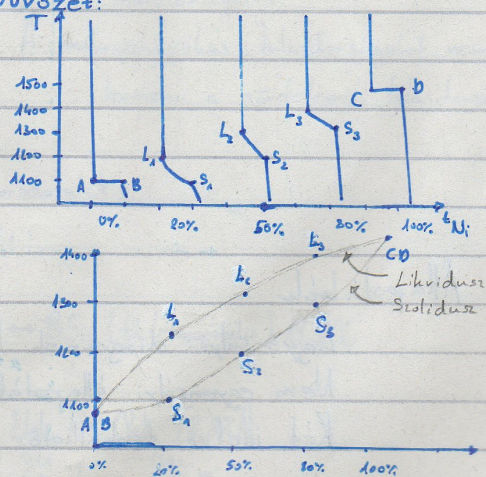 T
1500
1400
1300
1200
1100
A B
L₁
S₁
L₂
S₂
L₃
S₃
C D
0% 20% 50% 80% 100% t Ni
1400
1300
1200
1100
A B
L₁
S₁
L₂
S₂
L₃
S₃
CD
Likvidusz
Szolidusz
0% 20% 50% 80% 100%